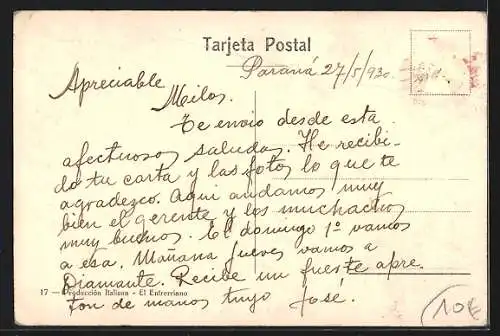 Tarjeta Postal
Paraná 27/5/930.
Apreciable
Milos.
Te envio desde esta
afectuosos saludos. He recibi-
do tu carta y las fotos lo que te
agradezco. Aqui andamos muy
bien el gerente y los muchachos
muy buenos. El domingo 1º vamos
a esa. Mañana jueves vamos a
Diamante. Recibe un fuerte apre-
17 — Producción Italiana - El Entrerriano
ton de manos tuyo José.
10€